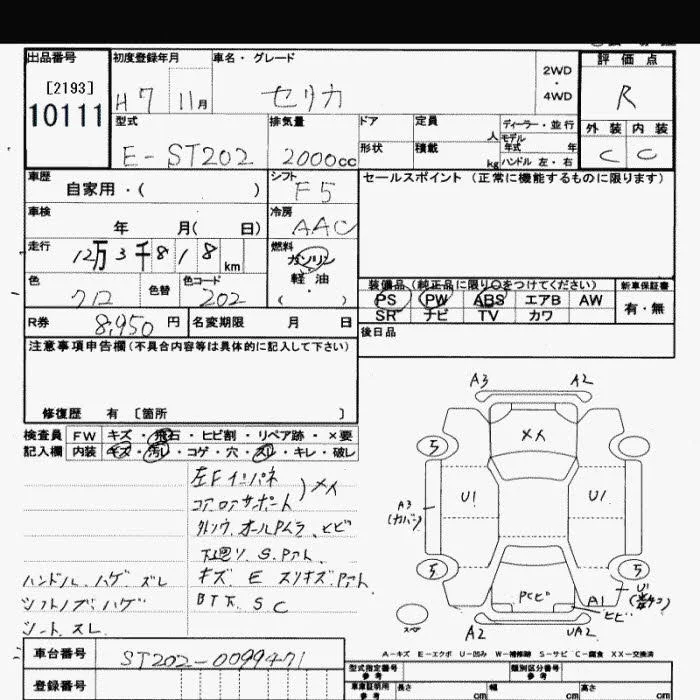 出品番号 初度登録年月 車名・グレード 評価点
[2193]
10111
H7 11月 セリカ 2WD・4WD R
型式 排気量 ドア 定員 人 ディーラー・並行
モデル年式 年
外装 内装
E-ST202 2000cc 形状 積載 kg ハンドル 左・右 C C
車歴 シフト セールスポイント(正常に機能するものに限ります)
自家用・( ) F5
車検 冷房
年 月( 日) AAC
走行 燃料
12万3千818km ガソリン
軽・油
( ・ )
色 色替 色コード
712 202
装備品(純正品に限り○をつけてください) 新車保証書
PS PW ABS エアB AW 有・無
SR ナビ TV カワ
R券 8,950円 名変期限 月 日
後日品
注意事項申告欄(不具合内容等は具体的に記入して下さい)
修復歴 有 [箇所 ]
検査員 FW キズ・飛石・ヒビ割・リペア跡・×要
記入欄 内装 キズ・汚レ・コゲ・穴・スレ・キレ・破レ
左Fインパネ
コアロアサポート)メイ
オールPムラ、ヒビ
下廻り S.Pアト
ハンドル ハゲ スレ
キズ E スリキズ.Pアト
シフトノブ ハゲ
BT下 S C
シート スレ
A3 A2
メイ
5 5
U1 U1
A3
(カバー)
5 5
Pヒビ A1 U1
ヒビ
スペア
A2 UA2
A-キズ E-エクボ U-凹み W-補修跡 S-サビ C-腐食 XX-交換済
車台番号 ST202-0099471
登録番号
型式指定番号 参考 類別区分番号 参考
車庫証明用 参考 長さ cm 幅 cm 高さ cm